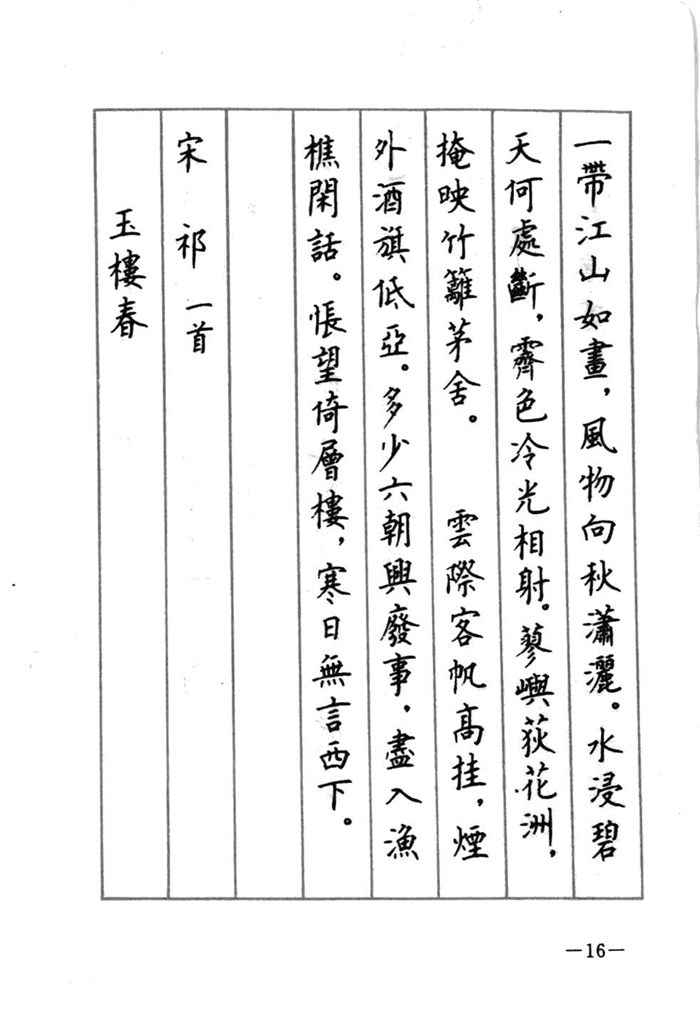 一帶江山如畫，風物向秋瀟灑。水浸碧
天何處斷，霽色冷光相射。蓼嶼荻花洲，
掩映竹籬茅舍。　　雲際客帆高挂，煙
外酒旗低亞。多少六朝興廢事，盡入漁
樵閑話。悵望倚層樓，寒日無言西下。
宋　祁 一首
玉樓春
—16—